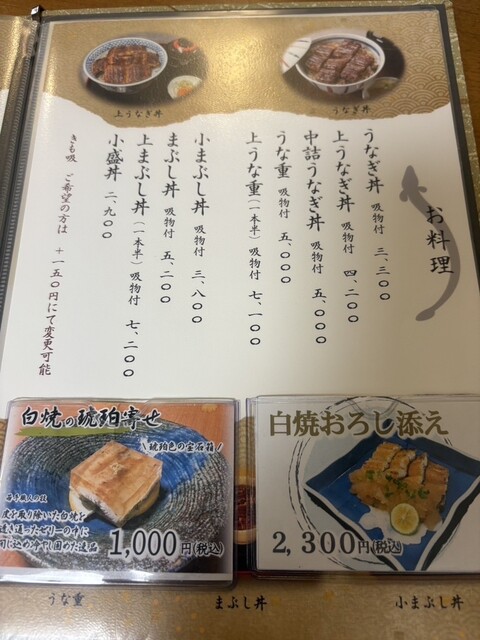 上うなぎ丼
うなぎ丼
お料理
うなぎ丼 吸物付 三、三〇〇
上うなぎ丼 吸物付 四、二〇〇
中詰うなぎ丼 吸物付 五、〇〇〇
うな重 吸物付 五、〇〇〇
上うな重(一本半)吸物付 七、一〇〇
小まぶし丼 吸物付 三、八〇〇
まぶし丼 吸物付 五、二〇〇
上まぶし丼(一本半)吸物付 七、二〇〇
小盛丼 二、九〇〇
きも吸 ご希望の方は +一五〇円にて変更可能
白焼の琥珀寄せ
\琥珀色の宝石箱/
若手職人の技
皮を取り除いた白焼を
透き通ったゼリーの中に
閉じ込め冷やし固めた逸品
1,000円(税込)
白焼おろし添え
2,300円(税込)
うな重
まぶし丼
小まぶし丼